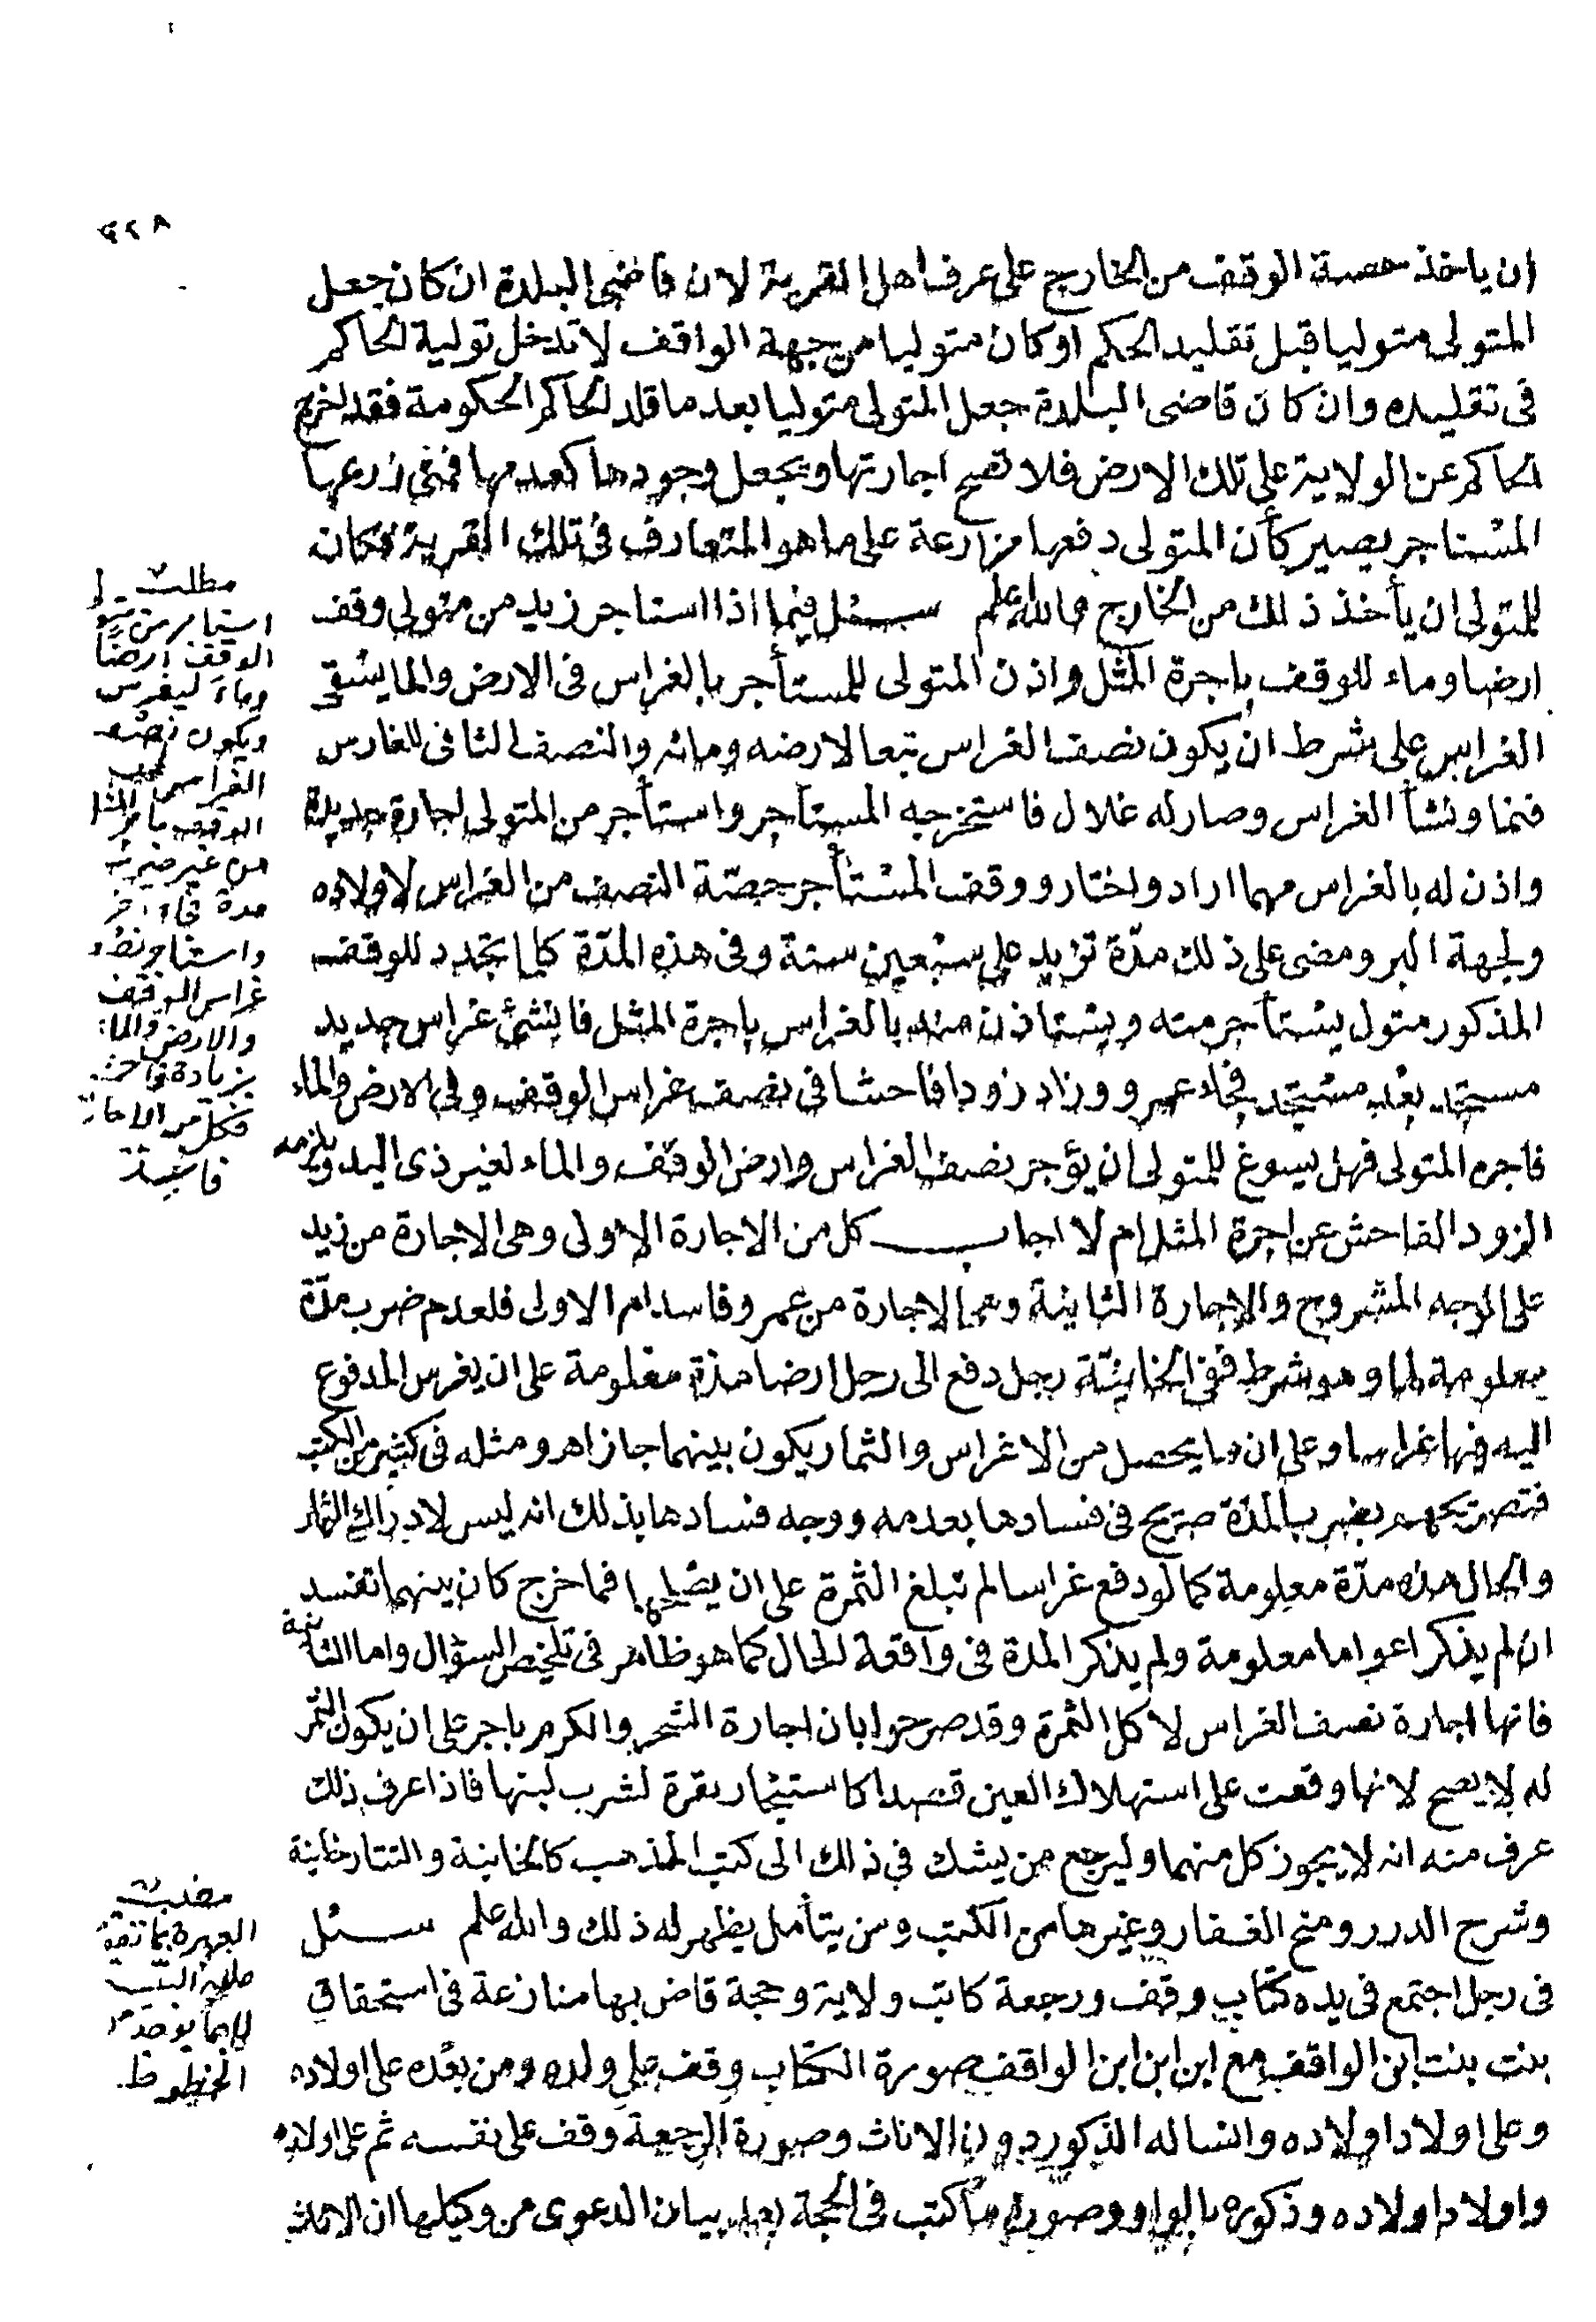 ٢٢٨
ان ياخذ حصة الوقف من الخارج على عرف اهل القرية لان قاضى البلدة ان كان جعل
المتولى متوليا قبل تقليد الحكم او كان متوليا من جهة الواقف لا تدخل تولية الحاكم
فى تقليده وان كان قاضى البلدة جعل المتولى متوليا بعد ما قلد الحاكم الحكومة فقد اخرج
الحاكم عن الولاية على تلك الارض فلا تصح اجارتها ويجعل وجودها كعدمها فمتى زرعها
المستاجر يصير كأن المتولى دفعها مزارعة على ما هو المتعارف فى تلك القرية فكان
للمتولى ان يأخذ ذلك من الخارج والله اعلم سئل فيما اذا استاجر زيد من متولى وقف
ارضا وماء للوقف باجرة المثل واذن المتولى للمستأجر بالغراس فى الارض والما يسقى
الغراس على شرط ان يكون نصف الغراس تبعا لارضه ومائه والنصف الثانى للغارس
فنما ونشأ الغراس وصار له غلال فاستخرجه المستأجر واستأجر من المتولى اجارة جديدة
واذن له بالغراس مهما اراد واختار ووقف المستأجر حصّة النصف من الغراس لاولاده
ولجهة البر ومضى على ذلك مدّة تزيد على سبعين سنة وفى هذه المدّة كلما يتجدد للوقف
المذكور متول يستأجر منه ويستاذن منه بالغراس باجرة المثل فانشئ غراس جديد
مستجد بعد مستجد فجاء عمرو وزاد زودا فاحشا فى نصف غراس الوقف وفى الارض والماء
فاجره المتولى فهل يسوغ للمتولى ان يؤجر نصف الغراس وارض الوقف والماء لغير ذى اليد ويلزمه
الزود الفاحش عن اجرة المثل ام لا اجاب كل من الاجارة الاولى وهى الاجارة من زيد
على الوجه المشروح والاجارة الثانية وهى الاجارة من عمرو فاسد اما الاولى فلعدم ضرب مدّة
معلومة لها وهو شرط ففى الخانيّة رجل دفع الى رجل ارضا مدّة معلومة على ان يغرس المدفوع
اليه فيها غراسا وعلى ان ما يحصل من الاغراس والثمار يكون بينهما جاز اهـ ومثله فى كثير من الكتب
فتصريحهم بضرب المدّة صريح فى فسادها بعدمه ووجه فسادها بذلك انه ليس لادراك الثمار
والحال هذه مدّة معلومة كما لو دفع غراسا لم تبلغ الثمرة على ان يصلحها فما خرج كان بينهما تفسد
ان لم يذكر اعواما معلومة ولم يذكر المدة فى واقعة الحال كما هو ظاهر فى تلخيص السؤال واما الثانية
فانها اجارة نصف الغراس لاكل الثمرة وقد صرحوا بان اجارة الشجر والكرم باجر على ان يكون الثمر
له لا يصح لانها وقعت على استهلاك العين قصدا كاستيجار بقرة لشرب لبنها فاذا عرف ذلك
عرف منه انه لا يجوز كل منهما وليرجع من يشك فى ذلك الى كتب المذهب كالخانية والتتارخانية
وشرح الدرر ومنح الغفار وغيرها من الكتب ومن يتأمل يظهر له ذلك والله اعلم سئل
فى رجل اجتمع فى يده كتاب وقف ورجعة كاتب ولاية وحجة قاض بها منازعة فى استحقاق
بنت بنت ابن الواقف مع ابن ابن ابن الواقف صورة الكتاب وقف على ولده ومن بعده على اولاده
وعلى اولاد اولاده وانساله الذكور دون الاناث وصورة الرجعة وقف على نفسه ثم على اولاده
واولاد اولاده وذكوره بالواو وصورة ما كتب فى الحجة بعد بيان الدعوى من وكيلها ان الاناث
مطلب
الوقف ارضا
وماء ليغرس
ويكون نصف
الغراس
من غير
مدة
واستاجر نصف
غراس الوقف
والارض والماء
بزيادة فاحشة
فكل من الاجارة
فاسدة
مطلب
العبرة بما تقوم
عليه البينة
لا بما يوجد
الخطوط